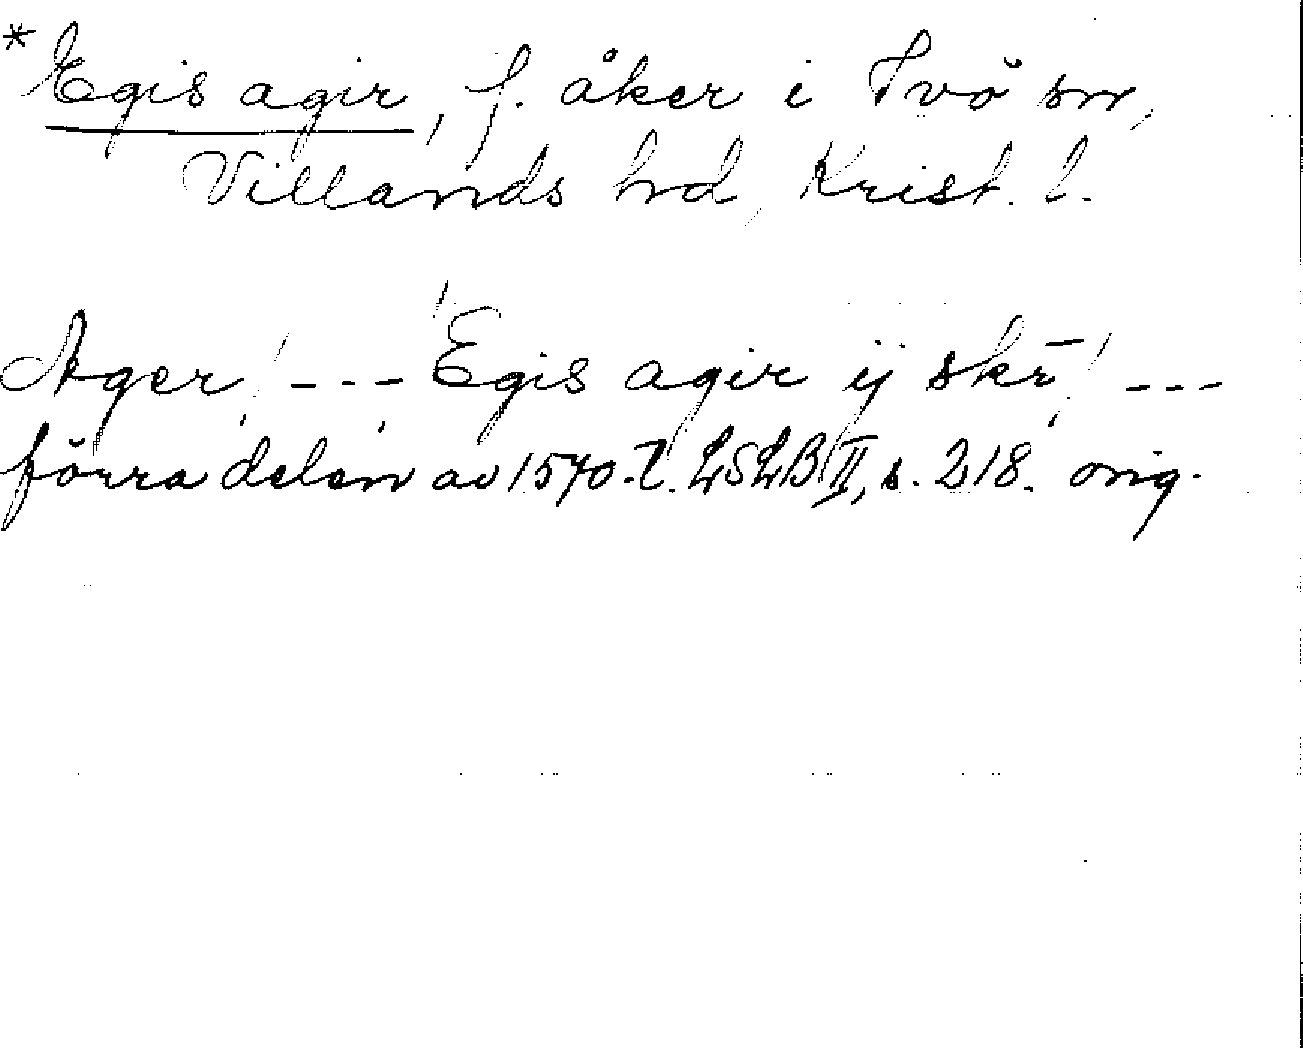 * Egis agir, f. åker i Ivö sn,
Villands hd, Krist. l.
Ager, / - - - Egis agir ij skr̄ / - - -
förra delen av 1570-t. LSLB II, s. 218. orig.